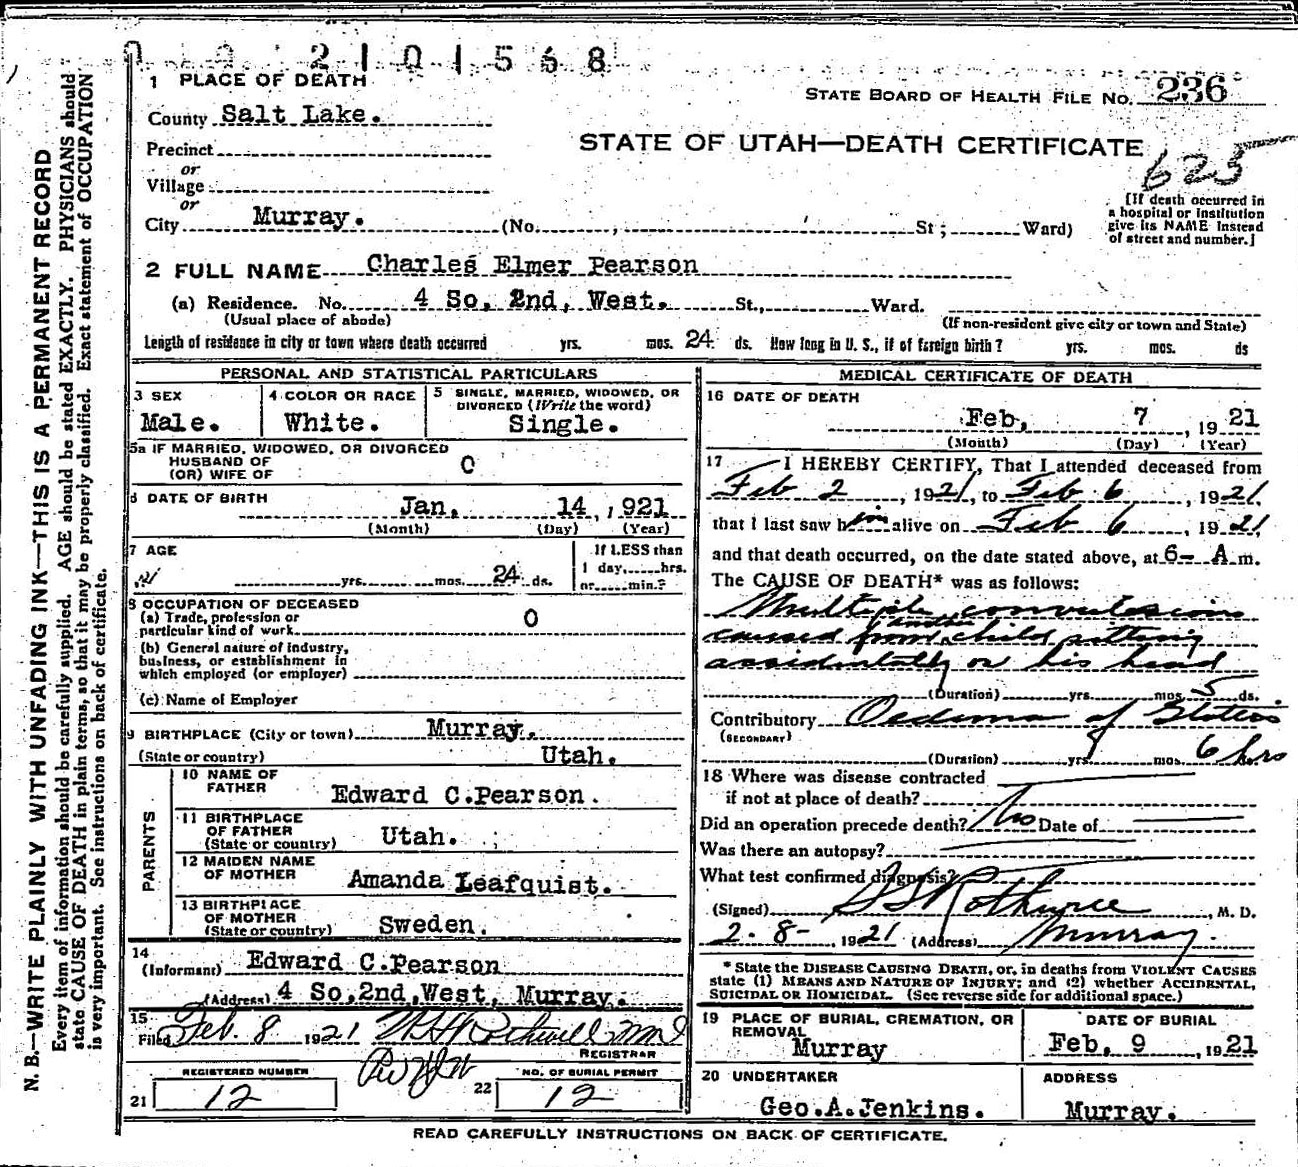 2101568
1 PLACE OF DEATH
STATE BOARD OF HEALTH FILE NO. 236
County Salt Lake.
STATE OF UTAH—DEATH CERTIFICATE
625
Precinct
or
Village
or
City Murray. (No. , St; Ward)
[If death occurred in
a hospital or institution
give its NAME instead
of street and number.]
2 FULL NAME Charles Elmer Pearson
(a) Residence. No. 4 So, 2nd, West. St., Ward.
(Usual place of abode) (If non-resident give city or town and State)
Length of residence in city or town where death occurred yrs. mos. 24 ds. How long in U. S., if of foreign birth? yrs. mos. ds
PERSONAL AND STATISTICAL PARTICULARS
3 SEX
Male.
4 COLOR OR RACE
White.
5 SINGLE, MARRIED, WIDOWED, OR
DIVORCED (Write the word)
Single.
5a IF MARRIED, WIDOWED, OR DIVORCED
HUSBAND OF
(OR) WIFE OF O
6 DATE OF BIRTH
Jan. 14, 1921
(Month) (Day) (Year)
7 AGE
yrs. mos. 24 ds.
If LESS than
1 day, hrs.
or min.?
8 OCCUPATION OF DECEASED
(a) Trade, profession or
particular kind of work O
(b) General nature of industry,
business, or establishment in
which employed (or employer)
(c) Name of Employer
9 BIRTHPLACE (City or town) Murray.
(State or country) Utah.
PARENTS
10 NAME OF
FATHER
Edward C.Pearson.
11 BIRTHPLACE
OF FATHER
(State or country) Utah.
12 MAIDEN NAME
OF MOTHER
Amanda Leafquist.
13 BIRTHPLACE
OF MOTHER
(State or country) Sweden.
14
(Informant) Edward C.Pearson
(Address) 4 So,2nd,West, Murray.
15
Filed Feb. 8 1921
REGISTRAR
REGISTERED NUMBER
21 12
NO. OF BURIAL PERMIT
22 12
MEDICAL CERTIFICATE OF DEATH
16 DATE OF DEATH
Feb, 7, 1921
(Month) (Day) (Year)
17 I HEREBY CERTIFY, That I attended deceased from
Feb 2, 1921, to Feb 6, 1921,
that I last saw him alive on Feb 6, 1921
and that death occurred, on the date stated above, at 6- A m.
The CAUSE OF DEATH* was as follows:
Multiple convulsions
caused from another child sitting
accidentally on his head
(Duration) yrs. mos. 5 ds.
Contributory Oedema of
(SECONDARY)
(Duration) yrs. mos. 6 hrs
18 Where was disease contracted
if not at place of death?
Did an operation precede death? No Date of
Was there an autopsy?
What test confirmed diagnosis?
(Signed) , M. D.
2-8-, 1921 (Address) Murray.
*State the DISEASE CAUSING DEATH, or, in deaths from VIOLENT CAUSES
state (1) MEANS AND NATURE OF INJURY; and (2) whether ACCIDENTAL,
SUICIDAL OR HOMICIDAL. (See reverse side for additional space.)
19 PLACE OF BURIAL, CREMATION, OR
REMOVAL
Murray
DATE OF BURIAL
Feb, 9, 1921
20 UNDERTAKER
Geo.A.Jenkins.
ADDRESS
Murray.
READ CAREFULLY INSTRUCTIONS ON BACK OF CERTIFICATE.
N. B.—WRITE PLAINLY WITH UNFADING INK—THIS IS A PERMANENT RECORD
Every item of information should be carefully supplied. AGE should be stated EXACTLY. PHYSICIANS should
state CAUSE OF DEATH in plain terms, so that it may be properly classified. Exact statement of OCCUPATION
is very important. See instructions on back of certificate.